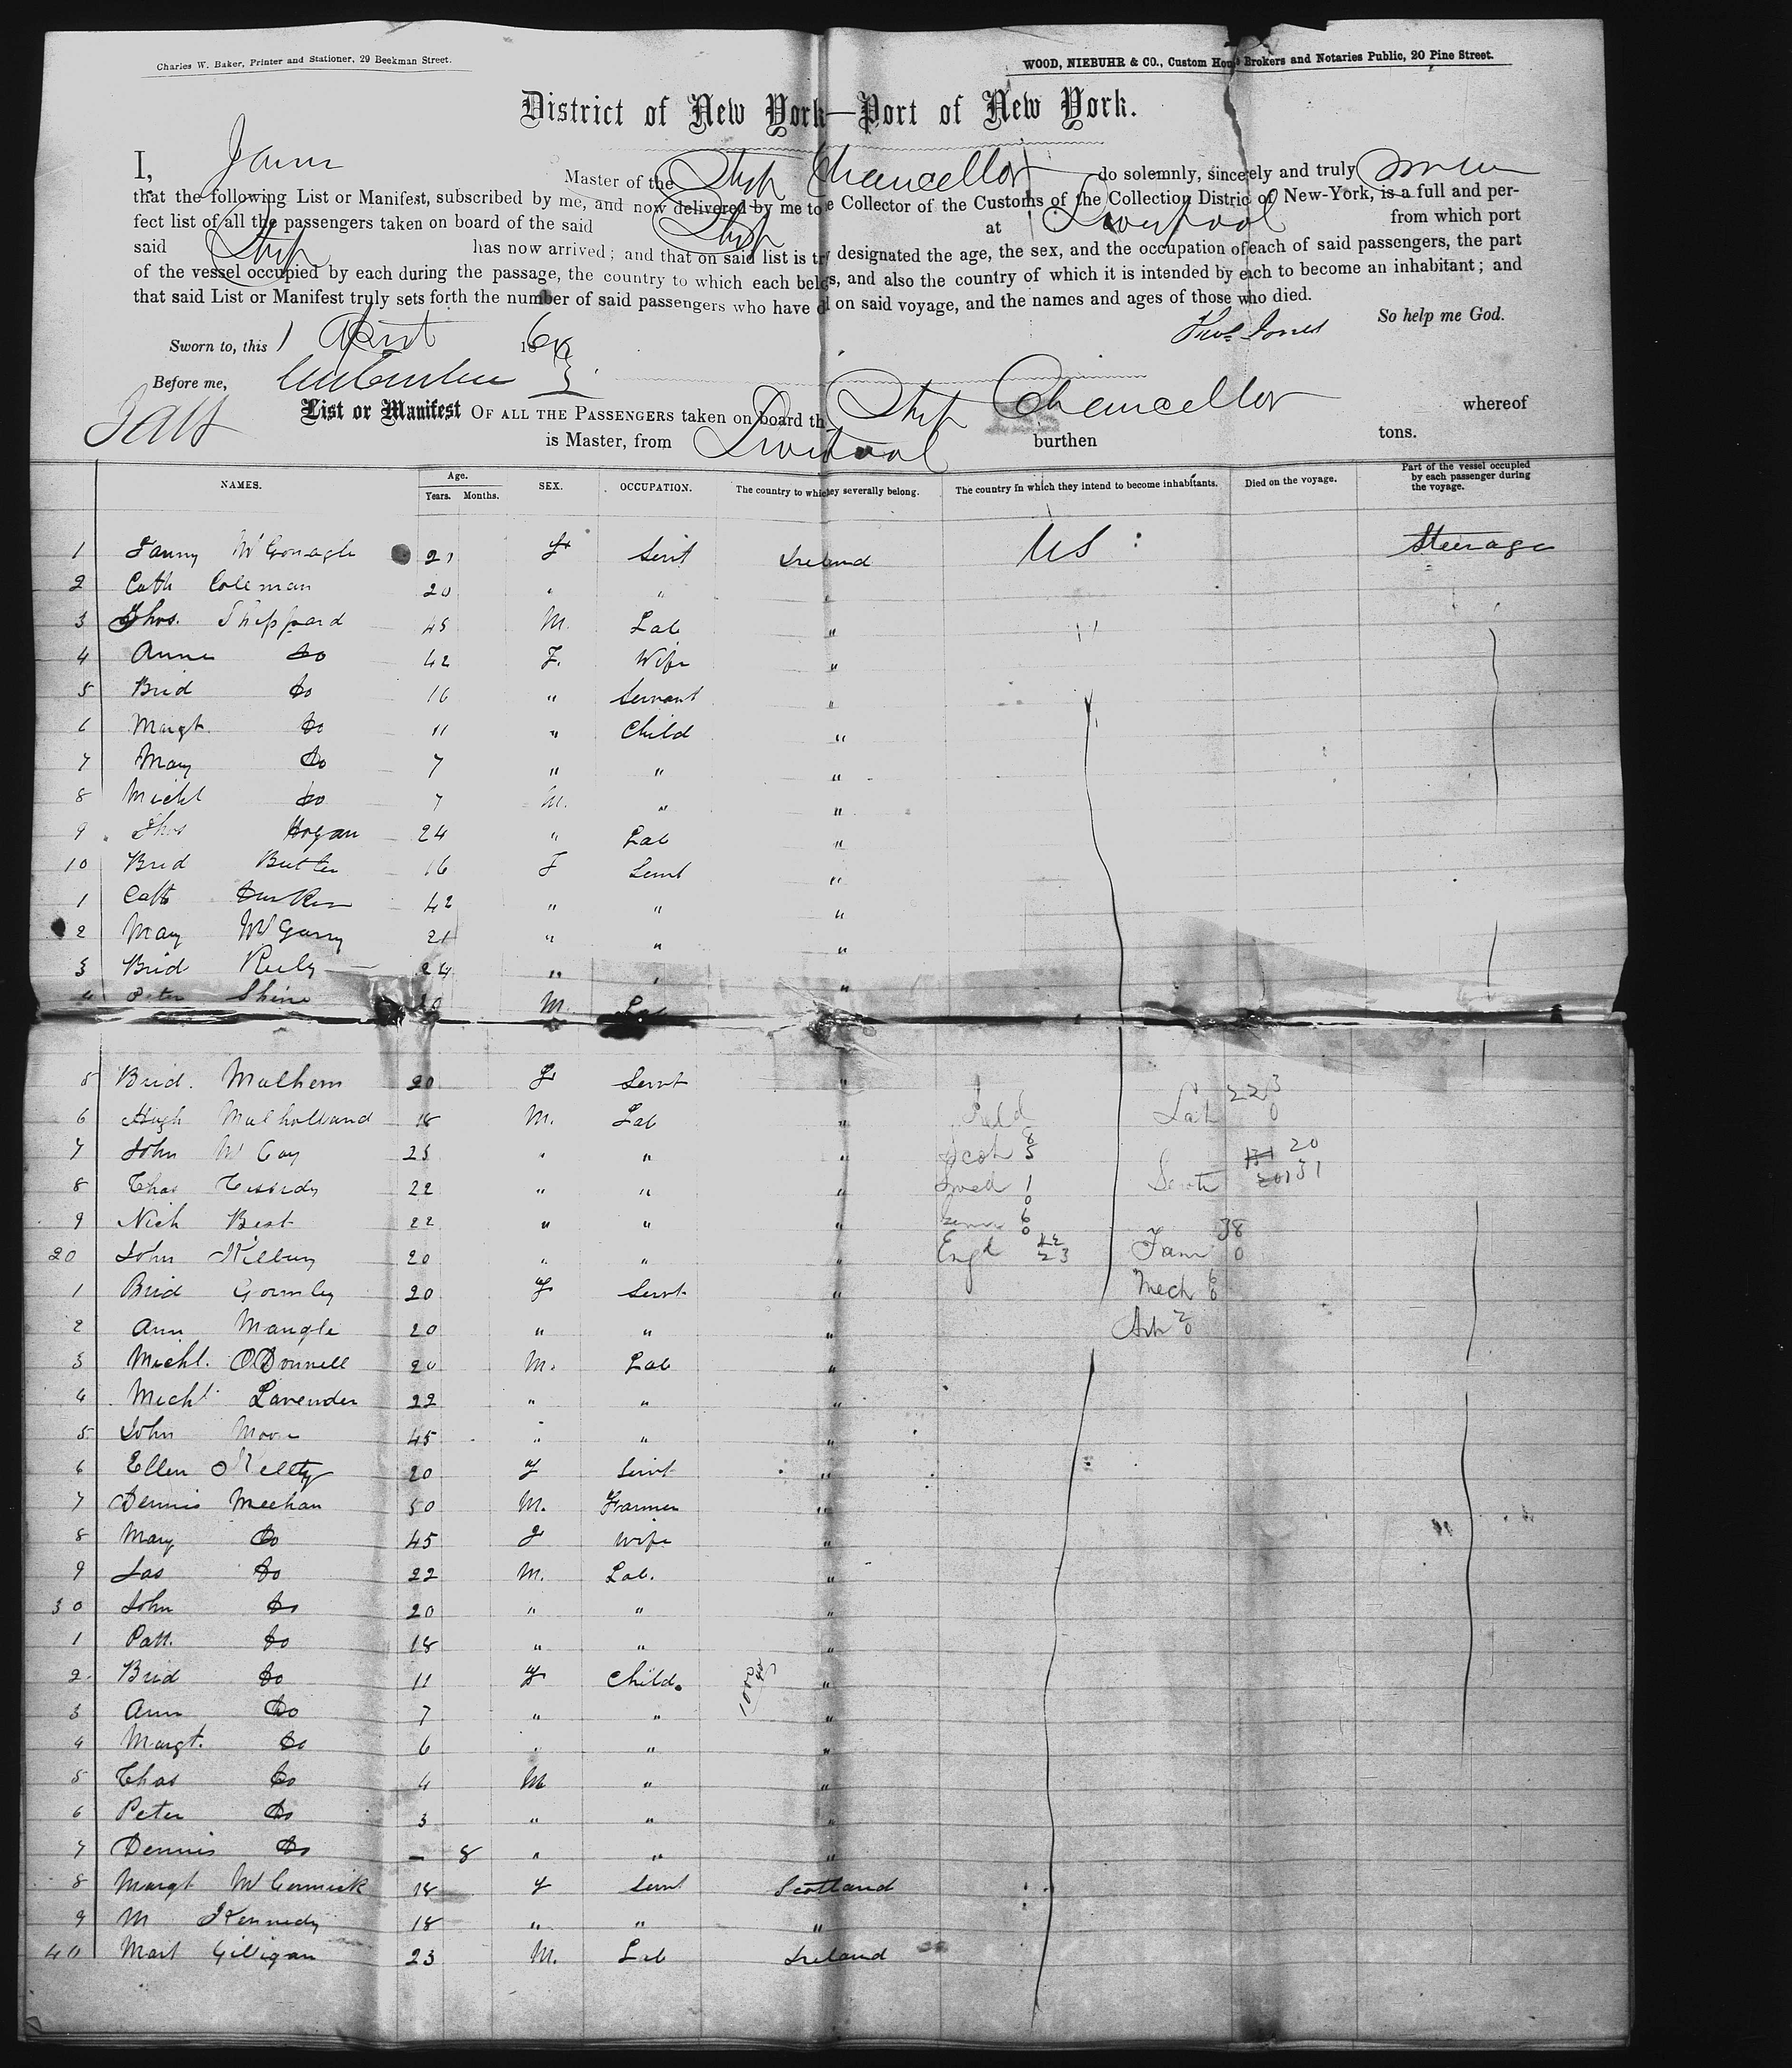 Charles W. Baker, Printer and Stationer, 29 Beekman Street.
WOOD, NIEBUHR & CO., Custom House Brokers and Notaries Public, 20 Pine Street.
District of New York—Port of New York.
I, Master of the Ship Chancellor do solemnly, sincerely and truly
that the following List or Manifest, subscribed by me, and now delivered by me to e Collector of the Customs of the Collection District of New-York, is a full and per-
fect list of all the passengers taken on board of the said Ship at Liverpool from which port
said Ship has now arrived; and that on said list is designated the age, the sex, and the occupation of each of said passengers, the part
of the vessel occupied by each during the passage, the country to which each s, and also the country of which it is intended by each to become an inhabitant; and
that said List or Manifest truly sets forth the number of said passengers who have d on said voyage, and the names and ages of those who died.
So help me God.
Jones
Sworn to, this 1 April 186
Before me,
List or Manifest OF ALL THE PASSENGERS taken on board th Ship Chancellor whereof
is Master, from Liverpool burthen tons.
NAMES. Age. Years. Months. SEX. OCCUPATION. The country to which they severally belong. The country in which they intend to become inhabitants. Died on the voyage. Part of the vessel occupied by each passenger during the voyage.
1 Fanny McGonagle 21 F Servt Ireland US Steerage
2 Cath Coleman 20 " " "
3 Thos. Sheppard 45 M. Lab "
4 Anne Do 42 F. Wife "
5 Brid Do 16 " Servant "
6 Margt. Do 11 " Child "
7 Mary Do 7 " " "
8 Michl Do 7 M. " "
9 Thos Hogan 24 " Lab "
10 Brid Butler 16 F Servt "
1 Cath 42 " " "
2 Mary McGarry 21 " " "
3 Brid Reily 24 " " "
4 Peter Shine M. Lab
5 Brid. Mulhern 20 F Servt "
6 Hugh Mulholland 18 M. Lab "
7 John McCoy 25 " " "
8 Thos Cassidy 22 " " "
9 Nich Best 22 " " "
20 John Kilbury 20 " " "
1 Brid Gormley 20 F Servt "
2 Ann Mangle 20 " " "
3 Michl. O'Donnell 20 M. Lab "
4 Michl Lavender 22 " " "
5 John Moore 45 " " "
6 Ellen O'Reilly 20 F Servt "
7 Dennis Meehan 50 M. Farmer "
8 Mary Do 45 F Wife "
9 Jas Do 22 M. Lab. "
30 John Do 20 " " "
1 Patt. Do 18 " " "
2 Brid Do 11 F Child. "
3 Ann Do 7 " " "
4 Margt. Do 6 " " "
5 Thos Do 4 M " "
6 Peter Do 3 " " "
7 Dennis Do - 8 " " "
8 Margt McCormick 18 F Servt Scotland
9 M Kennedy 18 " " "
40 Mart Gilligan 23 M. Lab Ireland
Lab 223 0
Scot 8 5
20
Swed 1 0
31
6 0
Engd 23
Farm 38 0
Mech 6 0